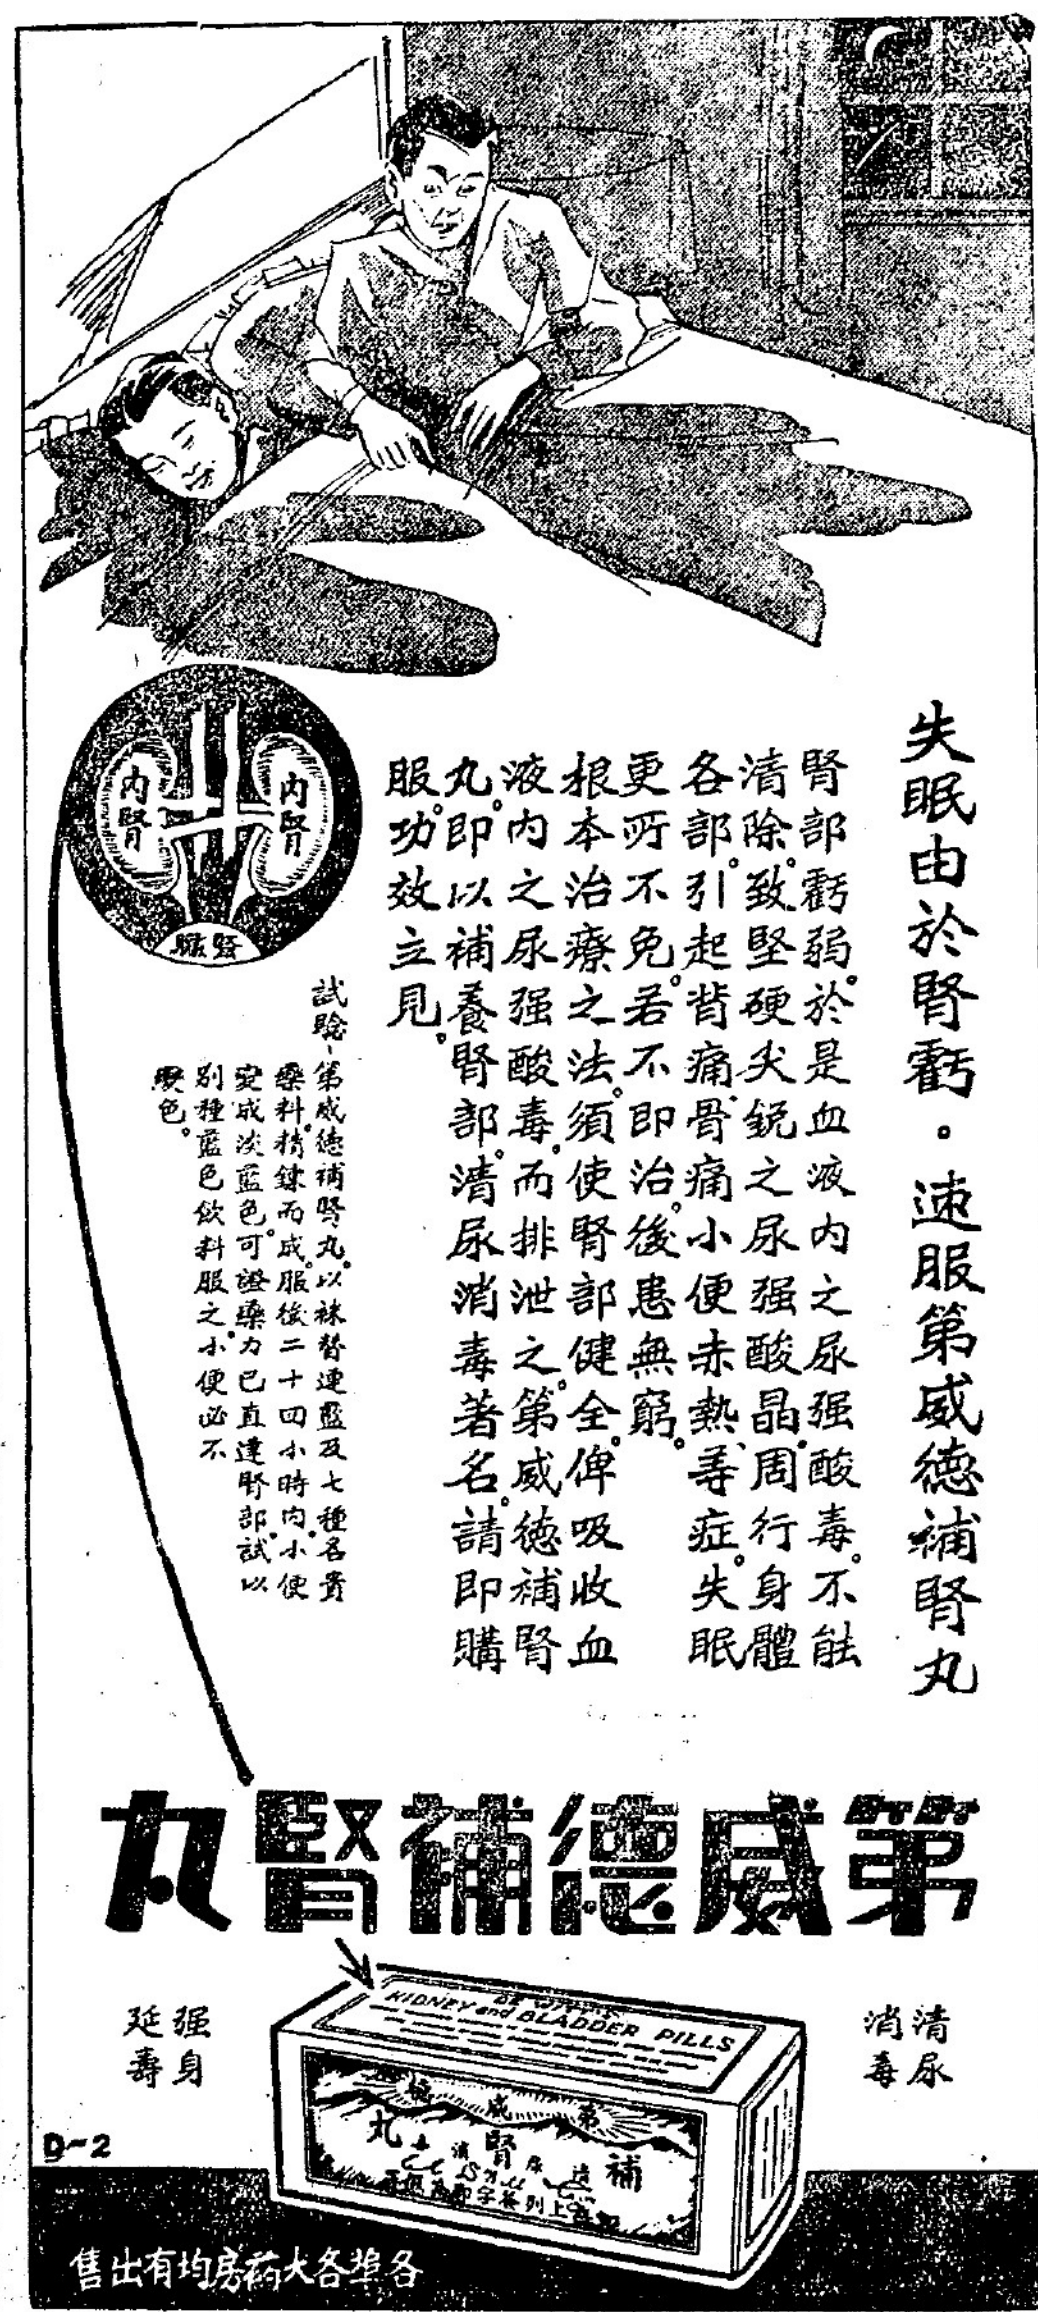 失眠由於腎虧。速服第威德補腎丸
腎部虧弱。於是血液内之尿强酸毒。不能
清除。致堅硬尖銳之尿强酸晶。周行身體
各部。引起背痛、骨痛、小便赤熱、等症。失眠
更所不免。若不即治。後患無窮。
根本治療之法。須使腎部健全。俾吸收血
液内之尿强酸毒。而排泄之。第威德補腎
丸。即以補養腎部。清尿消毒著名。請即購
服。功效立見。
内腎
内腎
試騐-第威德補腎丸。以袜替連藍及七種名貴
藥料。精鍊而成。服後二十四小時内。小便
変成淡藍色。可證藥力已直達腎部。試以
别種藍色飲料服之。小便必不
變色。
第威德補腎丸
清尿
消毒
强身
延壽
DE WITT'S
KIDNEY and BLADDER PILLS
第威德
補腎丸
D-2
各埠各大葯房均有出售